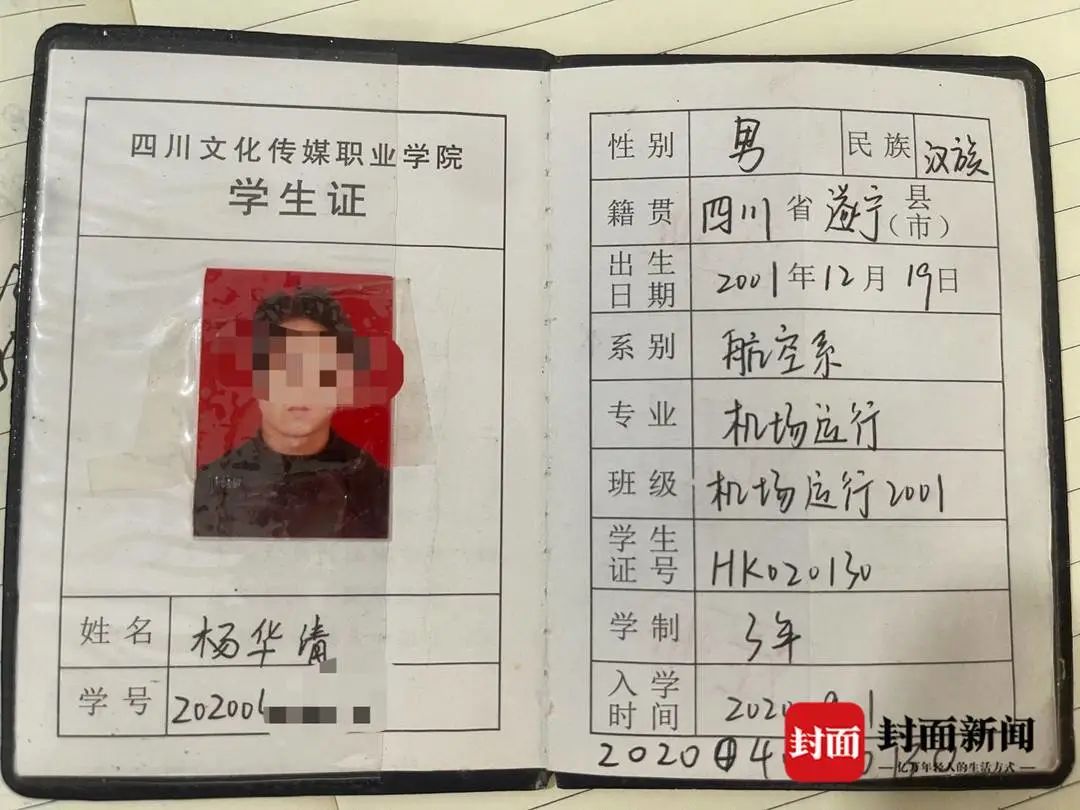 四川文化传媒职业学院
学生证
姓名 杨华清
学号 202006
性别 男 民族 汉族
籍贯 四川省遂宁县(市)
出生日期 2001年12月19日
系别 航空系
专业 机场运行
班级 机场运行2001
学生证号 HK020130
学制 3年
入学时间 2020 9 1
2020
封面 封面新闻
亿万年轻人的生活方式